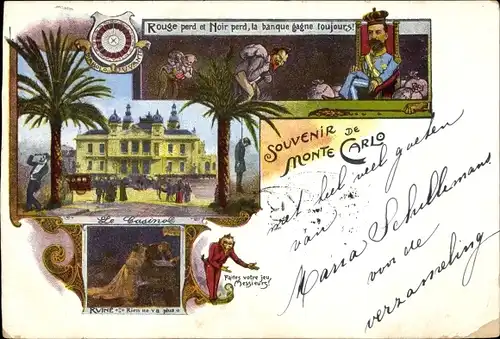 Rouge perd et Noir perd, la banque gagne toujours!
SOUVENIR DE
MONTE CARLO
met heel veel groeten
van
Maria Schellemans
voor de
verzameling
Le Casino
Faites votre jeu,
Messieurs!
RUINÉ "Rien ne va plus"